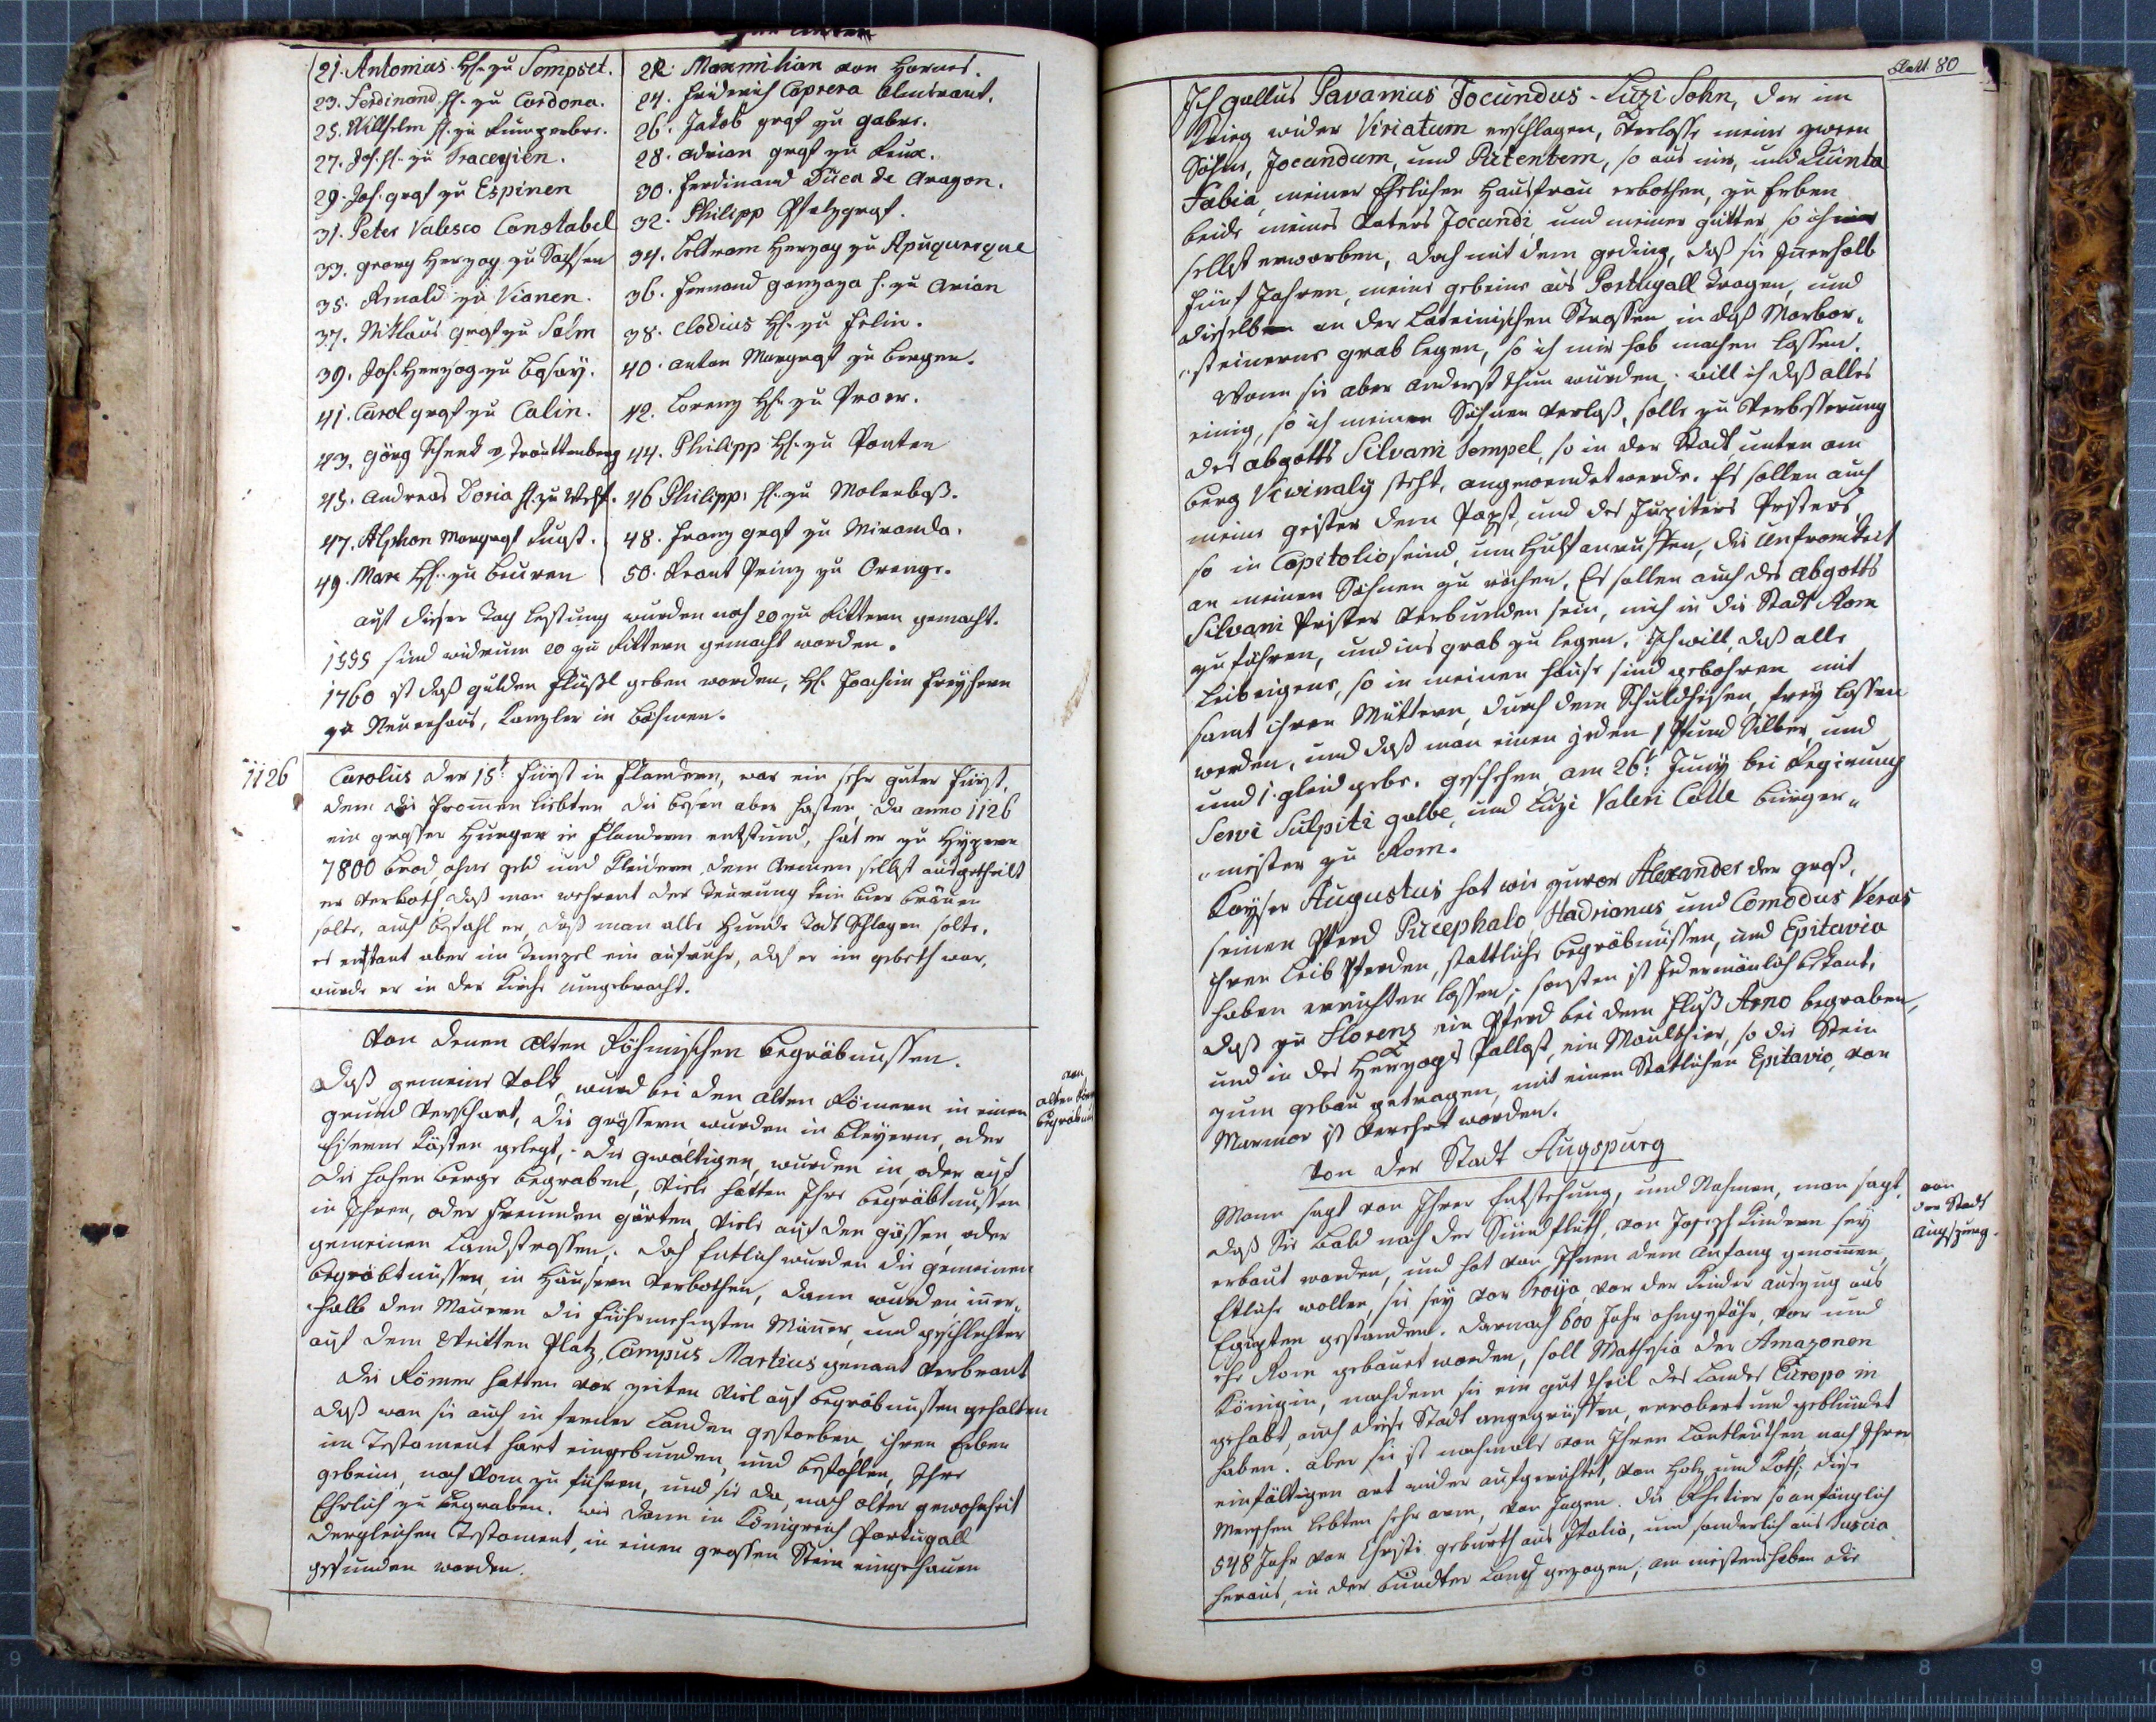 21. Antonius H. zu Sempset.
23. Ferdinand H. zu Cardona.
25. Willhelm H. zu
27. Joh. H. zu Tracegien.
29. Joh. graf zu Espinen
31. Peter Valesco Constabel
33. georg Herzog zu Sachsen
35. Arnald zu Vianen.
37. Niklaus graf zu Salm
39. Joh. Herzog zu
41. Carol graf zu Calin.
43. Görg Schenk v. Trauttenberg
45. Andreas Doria H. zu
47. Alphon Margraf Guast.
49. Max H. zu Beuren
22. Maxmilian von Hornes.
24. Friderich Caprera
26. Jakob graf zu gabre.
28. Adrian graf zu Reux.
30. Ferdinand Duca de Aragon.
32. Philipp Pfalzgraf.
34. Beltram Herzog zu Apuquerque
36. Fernand gonzaga H. zu Arian
38. Clodius H. zu Felin.
40. Anton Margraf zu Bergen.
42. Lorenz H. zu
44. Philipp H. zu Ponten
46. Philipp H. zu Molenbaß.
48. Franz graf zu Miranda.
50. Prinz zu Orenge.
auf dieser Tag leistung wurden noch 20 zu Rittern gemacht.
1555 sind widrum 20 zu Rittern gemacht worden.
1760 ist daß gulden Flüßl geben worden, H. Joachim Freyherrn
zu Neuenhaus, Kanzler in Böhmen.
1126
Carolus der 15t. Fürst in Flandern, war ein sehr guter Fürst,
dem die Frommen liebten die bösen aber hasten, da anno 1126
ein grosser Hunger in Flandern entstund, hat er zu Hypern
7800 Brod ohne geld und Kleidern dem Armen selbst ausgetheilt
er verboth daß man wehrent der Teurung kein bier bräuen
solte, auch befahl er, daß man alle Hunde Todt Schlagen solte.
es entstant aber im Tempel ein aufruhr, als er im gebeth war,
wurde er in der Kirche umgebracht.
Von denen alten Röhmischen Begräbnussen.
Daß gemeine Volk, wurd bei den alten Römern in einen
grund verschart, die grössern wurden in Bleyerne, oder
Eiserne Kästen gelegt, die gwaltigen, wurden in, oder auf
die hohen Berge begraben, viele hatten Ihre Begräbtnussen
in Ihren, oder Freunden gärten, viele auf den gassen, oder
gemeinen Landstrassen, doch Entlich wurden die gemeinen
Begräbtnussen, in Häusern verbothen, dann wurden inner-
halb den Mauern die Führnehmsten Männer, und geschlechter
auf dem Platz, Campus Martius genant verbrant
Die Römer hatten vor zeiten viel auf Begräbnussen gehalten
daß wan sie auch in ferner Landen gestorben, ihren Erben
im Testament hart eingebunden, und befohlen, Ihre
gebeine, nach Rom zu führen, und sie da, nach alter gewohnheit
Ehrlich zu begraben. wie dann in Königreich Portugall
dergleichen Testament, in einen grossen Stein eingehauen
gefunden worden.
von
alten Röm
Begräbnus
Blatt 80
Ich gallus Pavamius Jocundus - Luzi Sohn, der im
Krieg wider Viriatum erschlagen, Verlasse meine zween
Söhne, Jocundum, und Putentem, so aus mir, und Quinta
Fabia, meiner Ehelichen Hausfrau erbothen, zu Erben
beide meines Vaters Jocundi, und meiner gütter, so ich mir
selbst erworben, doch mit dem geding, daß sie Innerhalb
Fünf Jahren, meine gebeine aus Portugall Tragen, und
dieselben an der Lateinischen Strassen in daß Marbor-
steinerne grab legen, so ich mir hab machen lassen.
Wann sie aber anderst thun wurden, will ich daß alles
einig, so ich meinen Söhnen verlaß, solle zu Verbesserung
des Abgotts Silvani Tempel, so in der Stadt unten am
Berg Viwinaly steht, angewendet werde. Es sollen auch
meine geister dem Papst, und des Jupiters Priesters
so in Capitolio seind, um Hülf anruffen, die Unfromkeit
an meinen Söhnen zu rächen. Es sollen auch des Abgotts
Silvani Prister verbunden sein, mich in die Stadt Rom
zu führen, und ins grab zu legen. Ich will, daß alle
Leibeigene, so in meinen Hause sind gebohren mit
samt ihren Müttern, durch dem Schuldheisen, frey lassen
werden, und daß man einen jeden 1 Pfund Silber, und
und 1. gleid gebe. geschehen am 26t. Juny bei Regierung
Servi Sulpiti galbe, und Luzi Valeri Cotte bürger-
meister zu Rom.
Kayser Augustus hat wie zuvor Alexander der groß,
seinen Pferd Pucephalo, Hadrianus und Comodus Verus
ihren Leib Pferden, stattliche Begräbnussen, und Epitavia
haben errichten lassen; sonsten ist Jedermänlich bekant,
daß zu Florenz ein Pferd bei dem Fluß Arno begraben,
und in des Herzogs Pallast, ein Maulthier, so die Stein
zum gebäu getragen, mit einen Statlichen Epitavio, von
Marmor ist verehrt worden.
Von der Stadt Augspurg
Mann sagt von Ihrer Entstehung, und Nahmen, man sagt,
daß Sie bald nach der Sündfluth, von Japeph Kindern sey
erbaut worden, und hat von Ihnen dem Anfang genommen,
Etliche wollen, sie sey vor Troija, vor der Kinder auszug aus
Egipten gestanden. darnach 600 Jahr ohngefähr, vor und
ehe Rom gebauet worden, soll Mathesia der Amazonen
Königin, nachdem sie ein gut theil des Landes Europa in
gehabt, auch diese Stadt angegriffen, errobert und geblündet
haben. aber sie ist nachmals von Ihren Landleuthen, nach Ihrer
einfältigen art wider aufgerichtet, von Holz und Koth; diese
Menschen lebten sehr arm, von Jagen. die Rhetier so anfänglich
548 Jahr vor Christi geburth aus Italia, und sonderlich aus Tuscia
heraus, in der Bündter Land gezogen, am meisten haben die
von
der Stadt
Augspurg.